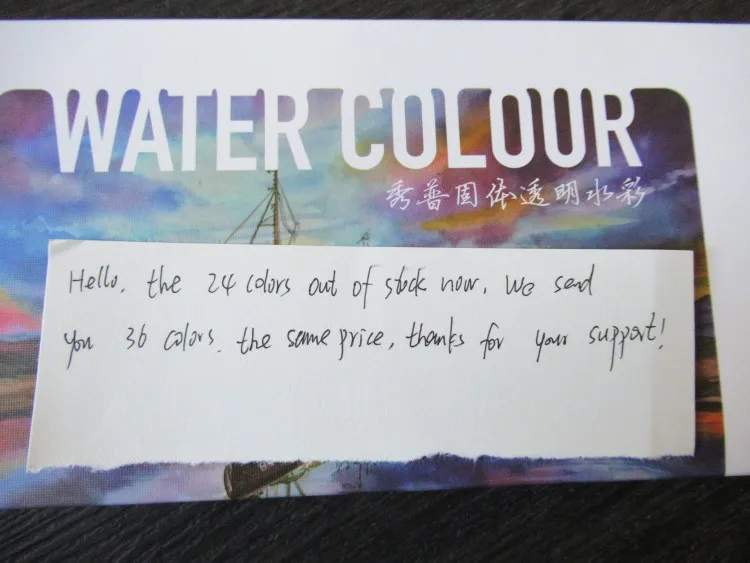 WATER COLOUR
秀普固体透明水彩
Hello, the 24 colors out of stock now, We send
you 36 colors, the same price, thanks for your support!